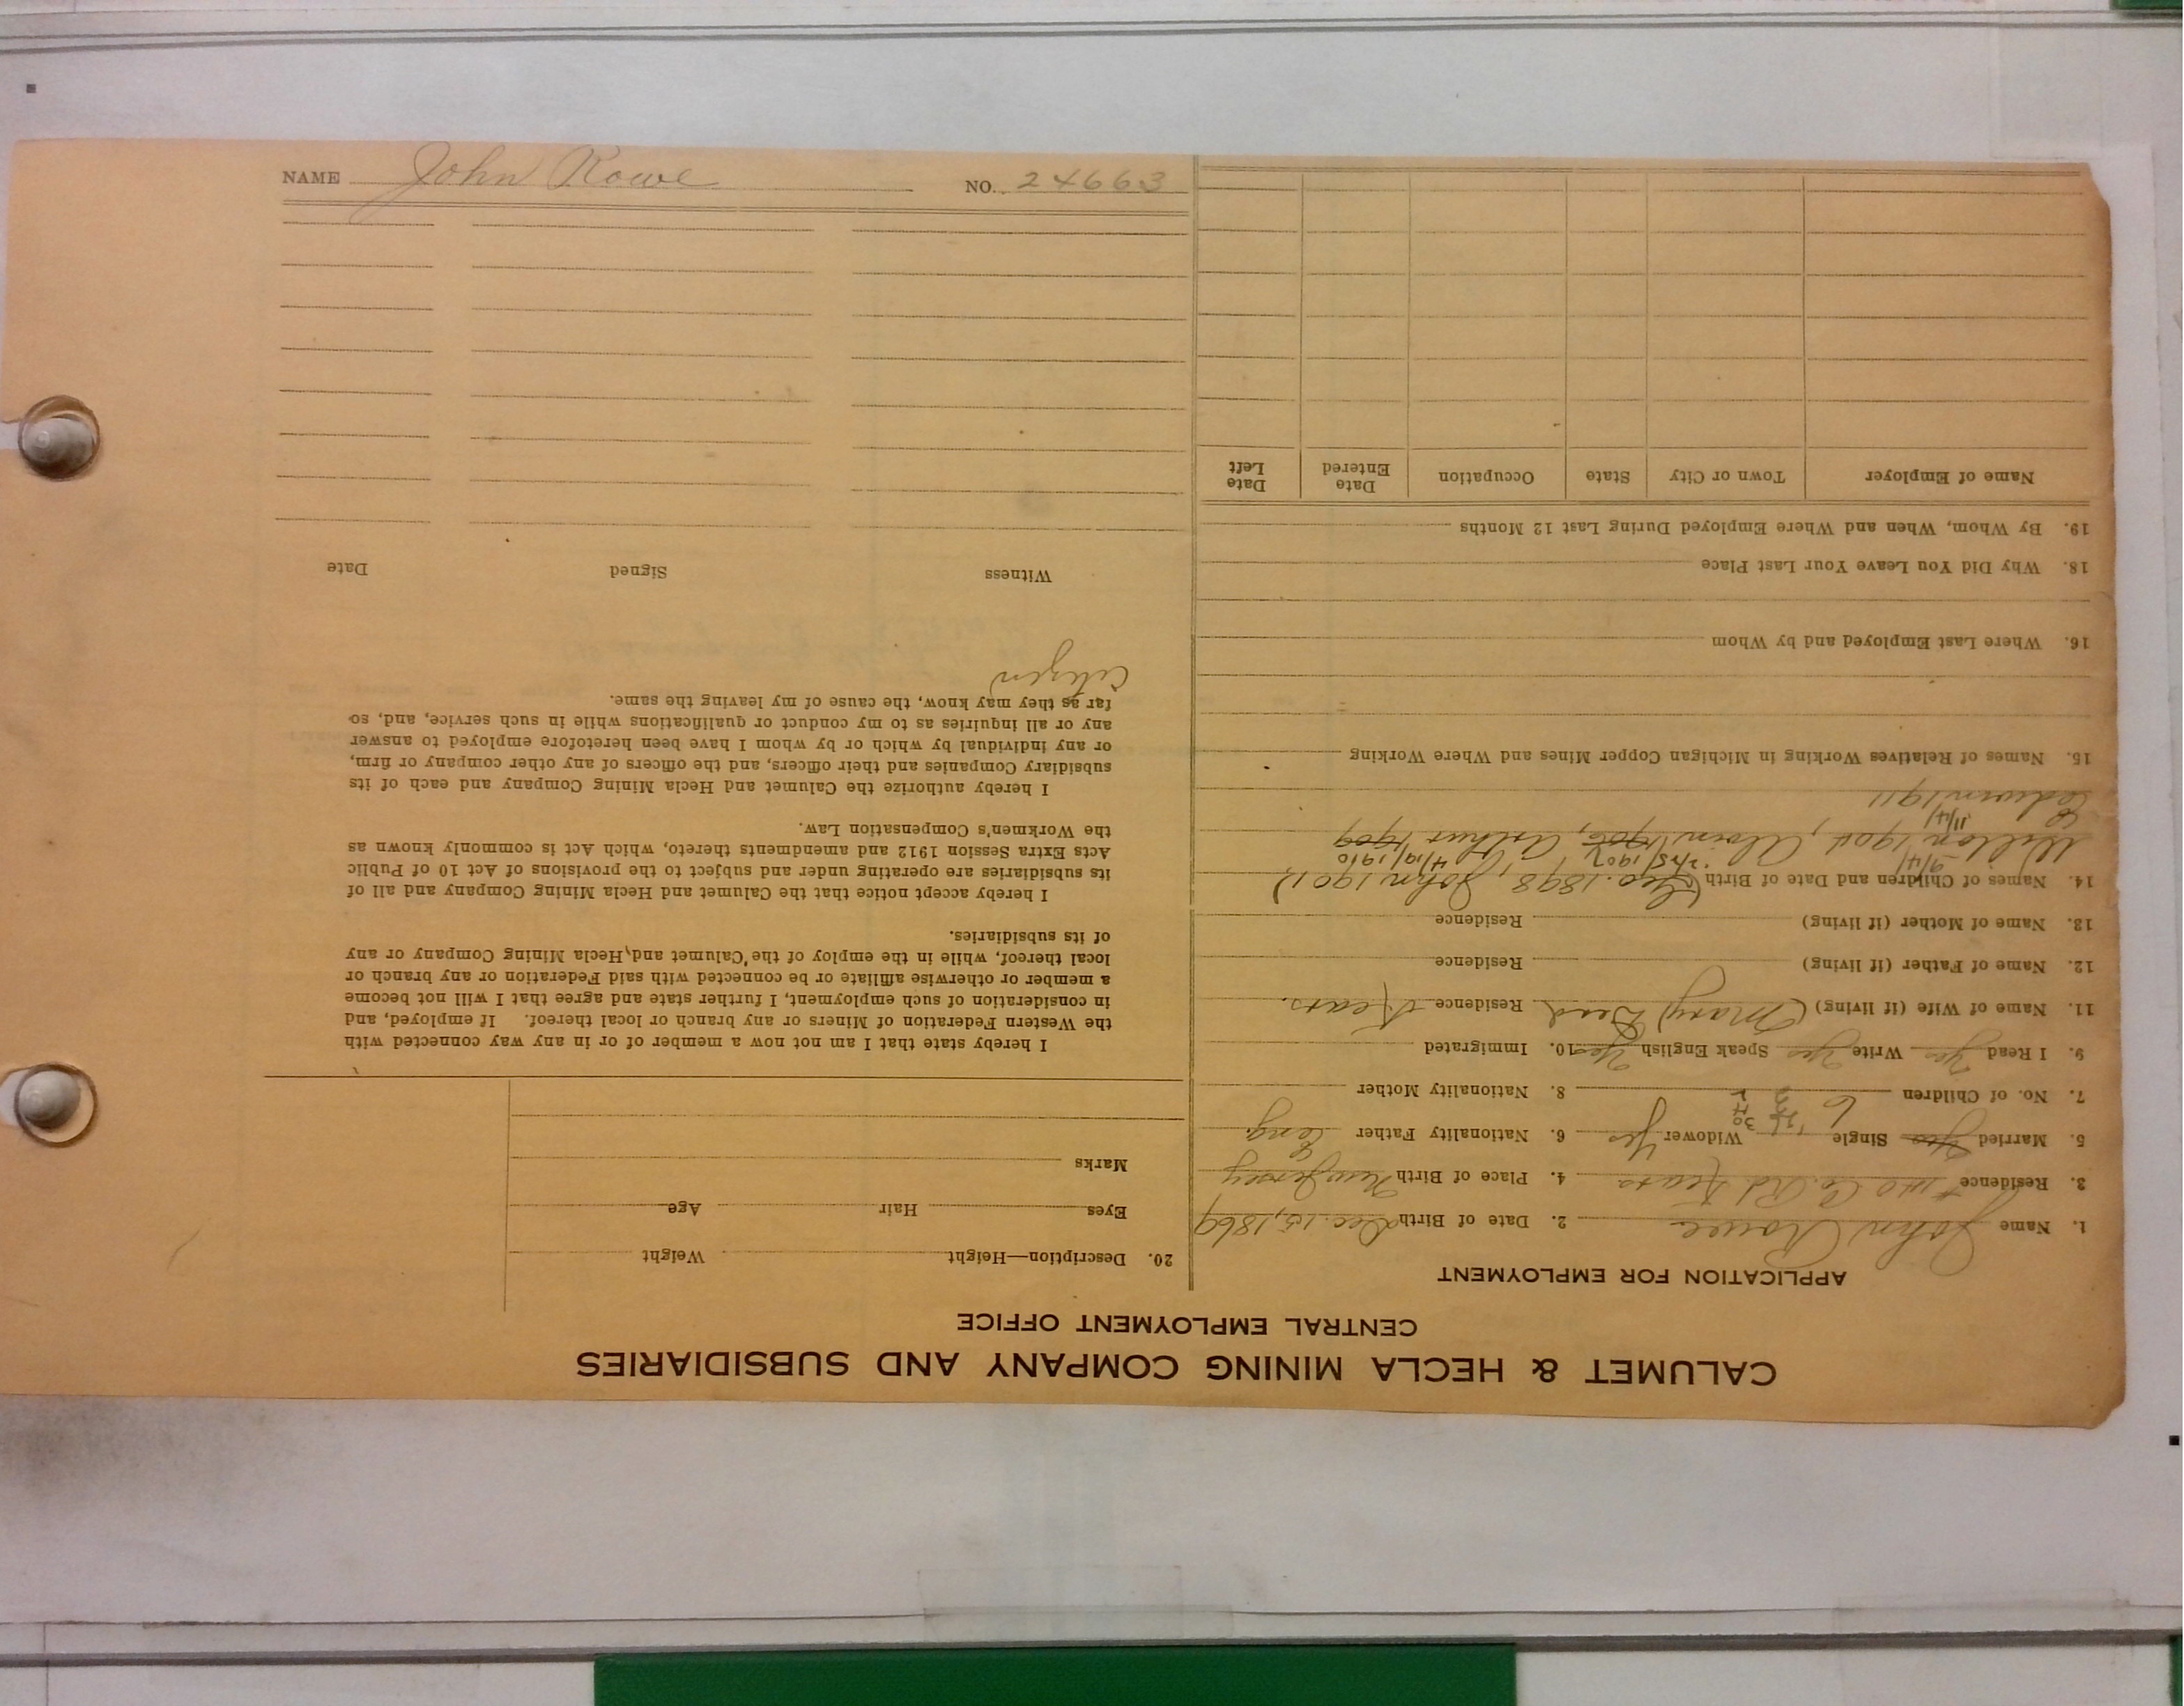 CALUMET & HECLA MINING COMPANY AND SUBSIDIARIES
CENTRAL EMPLOYMENT OFFICE
APPLICATION FOR EMPLOYMENT
1. Name John Rowe 2. Date of Birth Dec. 15, 1869
3. Residence # 110 Co. Rd Kears 4. Place of Birth New Jersey
5. Married Yes Single Widower Yes 6. Nationality Father Eng.
7. No. of Children 6 8. Nationality Mother
9. I Read Yes Write Yes Speak English Yes 10. Immigrated
11. Name of Wife (if living) (Mary) Dead Residence Kears.
12. Name of Father (if living) Residence
13. Name of Mother (if living) Residence
14. Names of Children and Date of Birth (Geo. 1898, John 1901)
Wilson 1904, Alvin 1906, Arthur 1909
Edwin 1911
15. Names of Relatives Working in Michigan Copper Mines and Where Working
16. Where Last Employed and by Whom
18. Why Did You Leave Your Last Place
19. By Whom, When and Where Employed During Last 12 Months
Name of Employer Town or City State Occupation Date Entered Date Left
20. Description—Height Weight
Eyes Hair Age
Marks
I hereby state that I am not now a member of or in any way connected with
the Western Federation of Miners or any branch or local thereof. If employed, and
in consideration of such employment, I further state and agree that I will not become
a member or otherwise affiliate or be connected with said Federation or any branch or
local thereof, while in the employ of the Calumet and Hecla Mining Company or any
of its subsidiaries.
I hereby accept notice that the Calumet and Hecla Mining Company and all of
its subsidiaries are operating under and subject to the provisions of Act 10 of Public
Acts Extra Session 1912 and amendments thereto, which Act is commonly known as
the Workmen's Compensation Law.
I hereby authorize the Calumet and Hecla Mining Company and each of its
subsidiary Companies and their officers, and the officers of any other company or firm,
or any individual by which or by whom I have been heretofore employed to answer
any or all inquiries as to my conduct or qualifications while in such service, and, so
far as they may know, the cause of my leaving the same.
Citizen
Witness Signed Date
NAME John Rowe NO. 24663